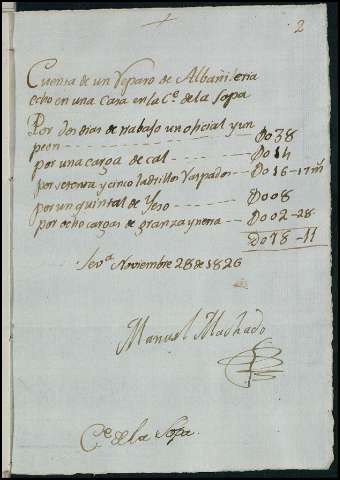 2
Cuenta de un Reparo de Albañileria
echo en una Casa en la Ce. de la Sopa
Por dos dias de trabajo un oficial y un
peon - - - - Do 38
por una carga de cal - - - - Do 14
por setenta y cinco ladrillos Raspados - - Do 16-17 m
por un quintal de Yeso - - - Do 08
por ocho cargas de granza y - - Do 02-28
Do 78-11
Seva. Noviembre 28 de 1826
Manuel Machado
Ce. de la Sopa.